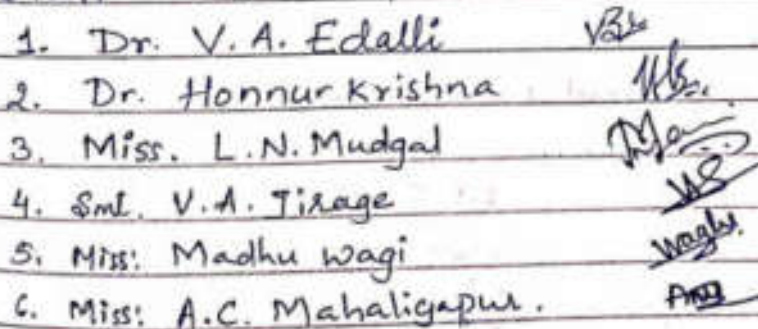 1. Dr. V. A. Edalli
2. Dr. Honnur Krishna
3. Miss. L. N. Mudgal
4. Smt. V. A. Jirage
5. Miss: Madhu Wagi
6. Miss: A.C. Mahaligapur.